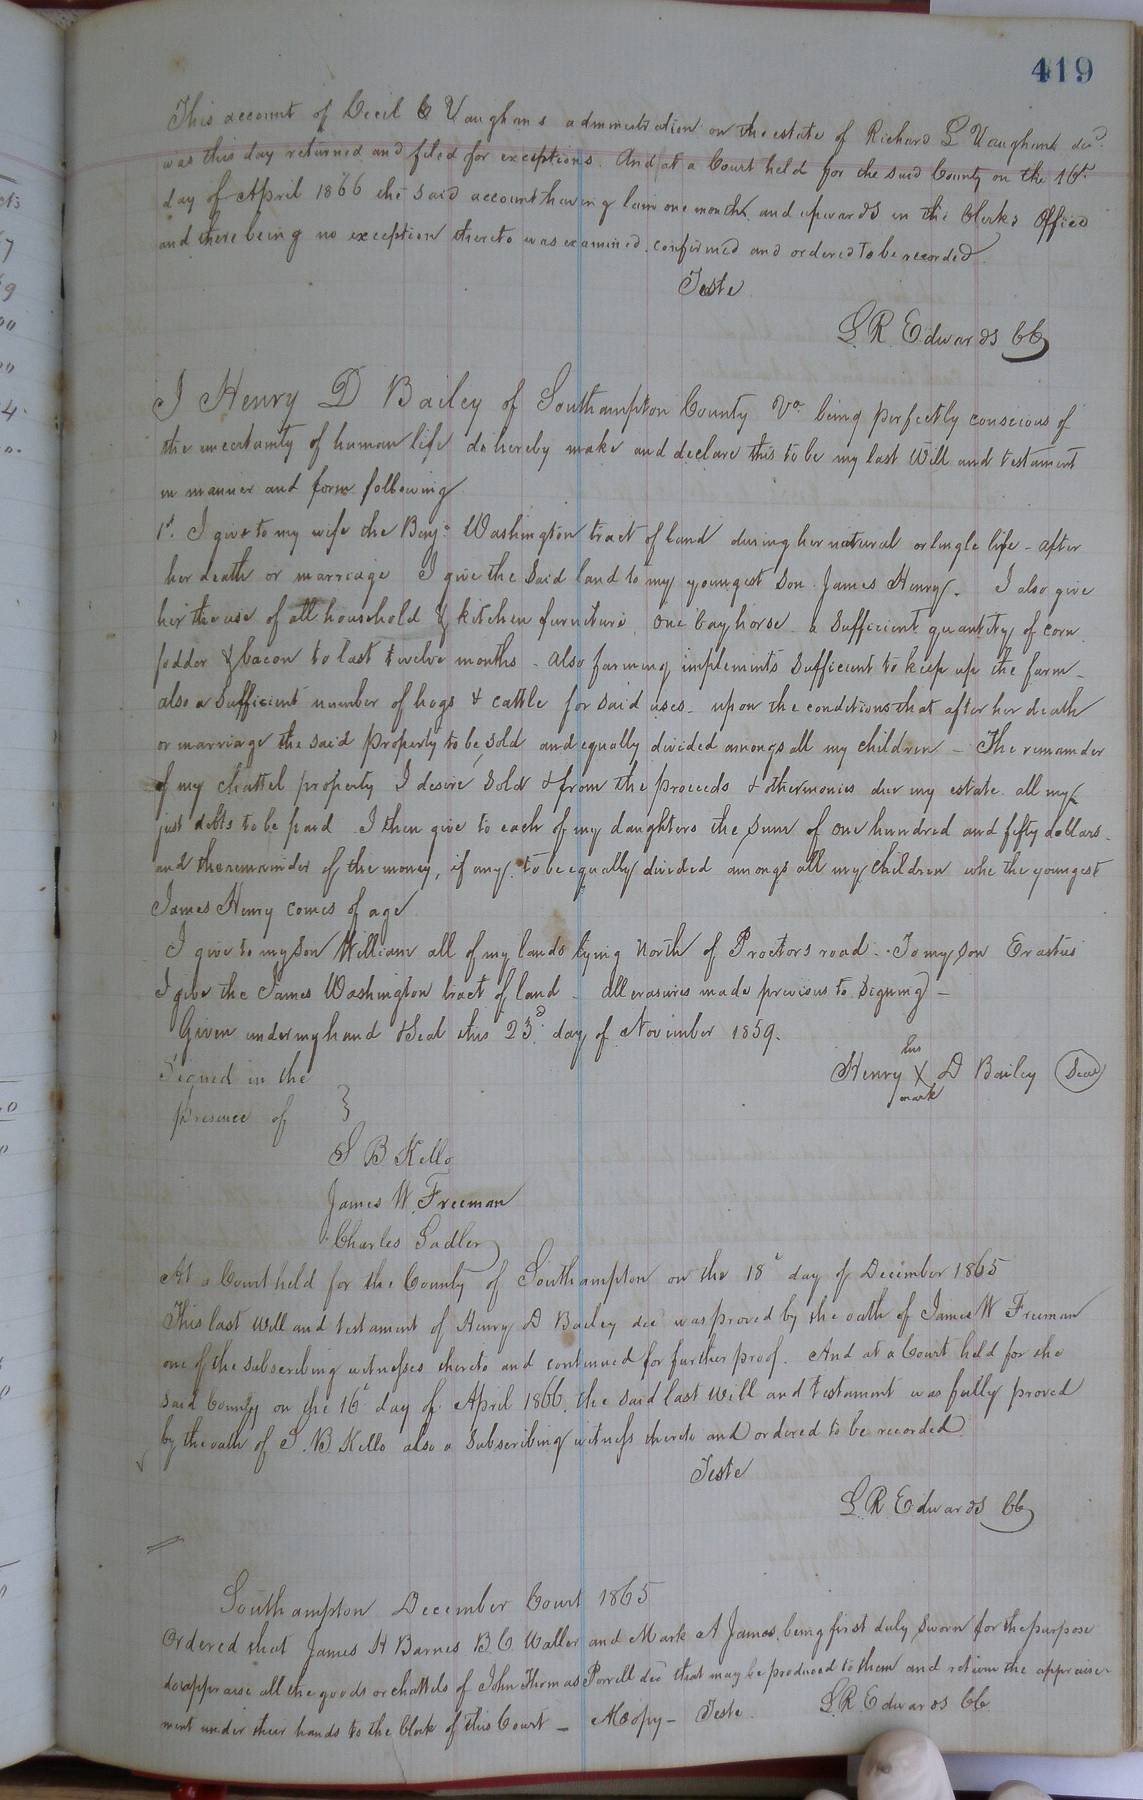 419
This account of Cecil C Vaughans administration on the estate of Richard L Vaughans decd.
was this day returned and filed for exceptions. And at a Court held for the said County on the 16th
day of April 1866 the said account having lain one month and upwards in the Clerks Office
and there being no exception thereto was examined. confirmed and ordered to be recorded.
Teste
L R Edwards CC
I Henry D Bailey of Southampton County Va. being perfectly conscious of
the uncertainty of human life do hereby make and declare this to be my last Will and testament
in manner and form following
1st. I give to my wife the Benj: Washington tract of land during her natural or single life - after
her death or marriage I give the said land to my youngest son James Henry. I also give
her the use of all household & kitchen furniture, one bay horse a sufficient quantity of corn
fodder & bacon to last twelve months - also farming implements sufficient to keep up the farm -
also a sufficient number of hogs & cattle for said uses - upon the conditions that after her death
or marriage the said property to be sold and equally divided amongs all my children - The remainder
of my chattel property I desire sold & from the proceeds & other monies due my estate all my
just debts to be paid I then give to each of my daughters the sum of one hundred and fifty dollars -
and the remainder of the money, if any, to be equally divided amongs all my children whe the youngest
James Henry comes of age
I give to my son William all of my lands lying North of Proctors road - To my son Erastus
I give the James Washington tract of land - All erasures made previous to signing -
Given under my hand & Seal this 23d day of November 1859.
Signed in the
presence of }
his
Henry X D Bailey Seal
mark
S B Kello
James W. Freeman
Charles Sadler
At a Court held for the County of Southampton on the 18th day of December 1865
This last will and testament of Henry D Bailey decd was proved by the oath of James W Freeman
one of the subscribing witnesses thereto and continued for further proof. And at a Court held for the
said County on the 16th day of April 1866, the said last will and testament was fully proved
by the oath of S. B Kello also a subscribing witness thereto and ordered to be recorded
Teste
L R Edwards CC
Southampton December Court 1865
Ordered that James H Barnes B C Waller and Mark A James, being first duly sworn for the purpose
do appraise all the goods or chattels of John Thomas decd that may be produced to them and return the appraise-
ment under their hands to the Clerk of this Court - A Copy - Teste L R Edwards CC